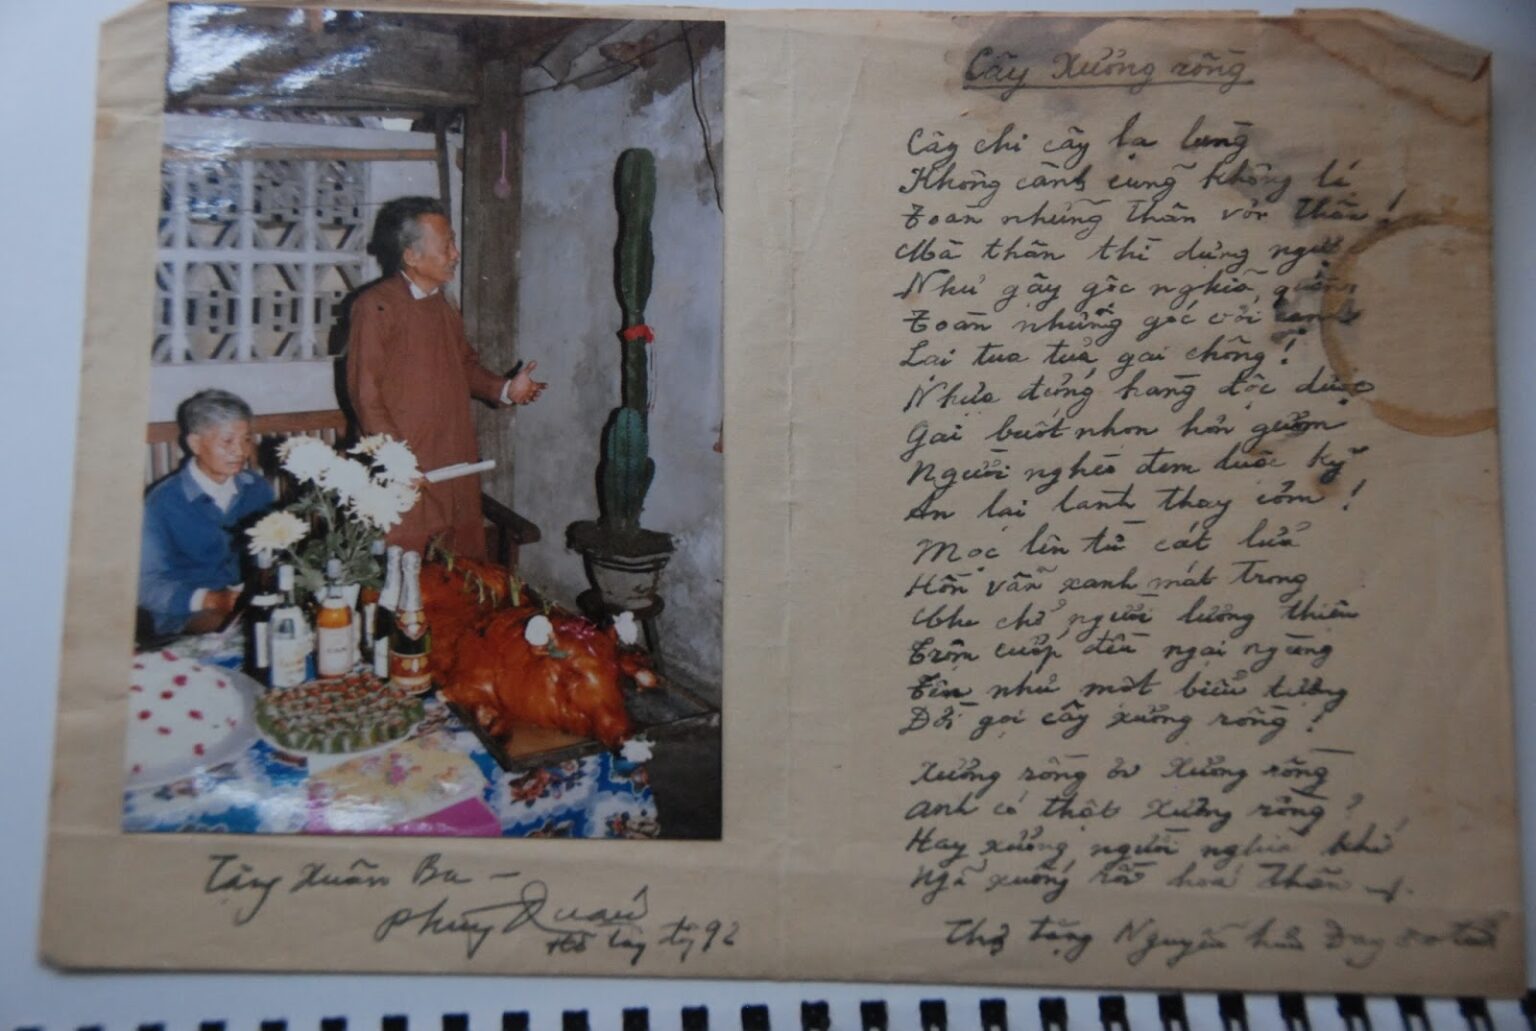 Cây Xương rồng
Cây chi cây lạ lùng
Không cành cũng không lá
Toàn những thân với thân!
Mà thân thì dựng ngược
Như gậy gộc nghĩa quân
Toàn những góc với cạnh
Lại tua tủa gai chông!
Nhựa đứng hàng độc dược
Gai buốt nhọn hơn gươm
Người nghèo đem luộc kỹ
Ăn lại lành thay cơm!
Mọc lên từ cát lửa
Hồn vẫn xanh mát trong
Che chở người lương thiện
Trộm cướp đều ngại ngùng
Tên như một biểu tượng
Đời gọi cây xương rồng!
Xương rồng ơi Xương rồng
Anh có thật Xương rồng?
Hay xương người nghèo khổ
Ngã xuống rồi hoá thân
Thơ tặng Nguyễn hữu Đang
Tặng Xuân Ba –
Phùng Quán
Hồ Tây 92